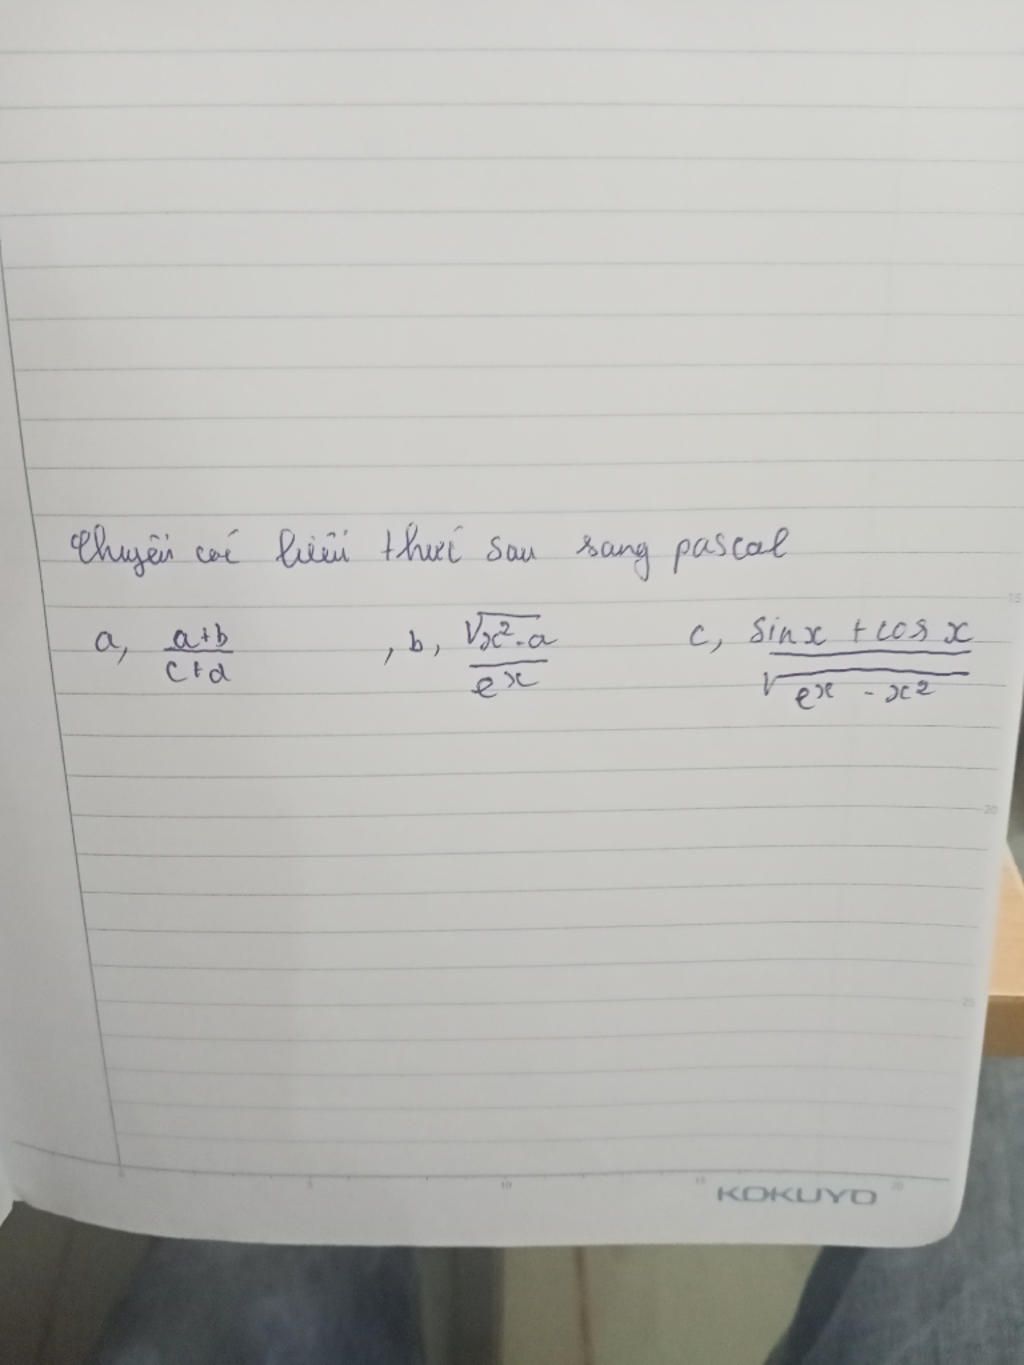 Chuyển các biểu thức sau sang pascal
a, (a+b)/(c+d) , b, √(x²-a)/e^x c, (sin x + cos x)/√(e^x - x²)
15
20
25
5 10 15 20
KOKUYO